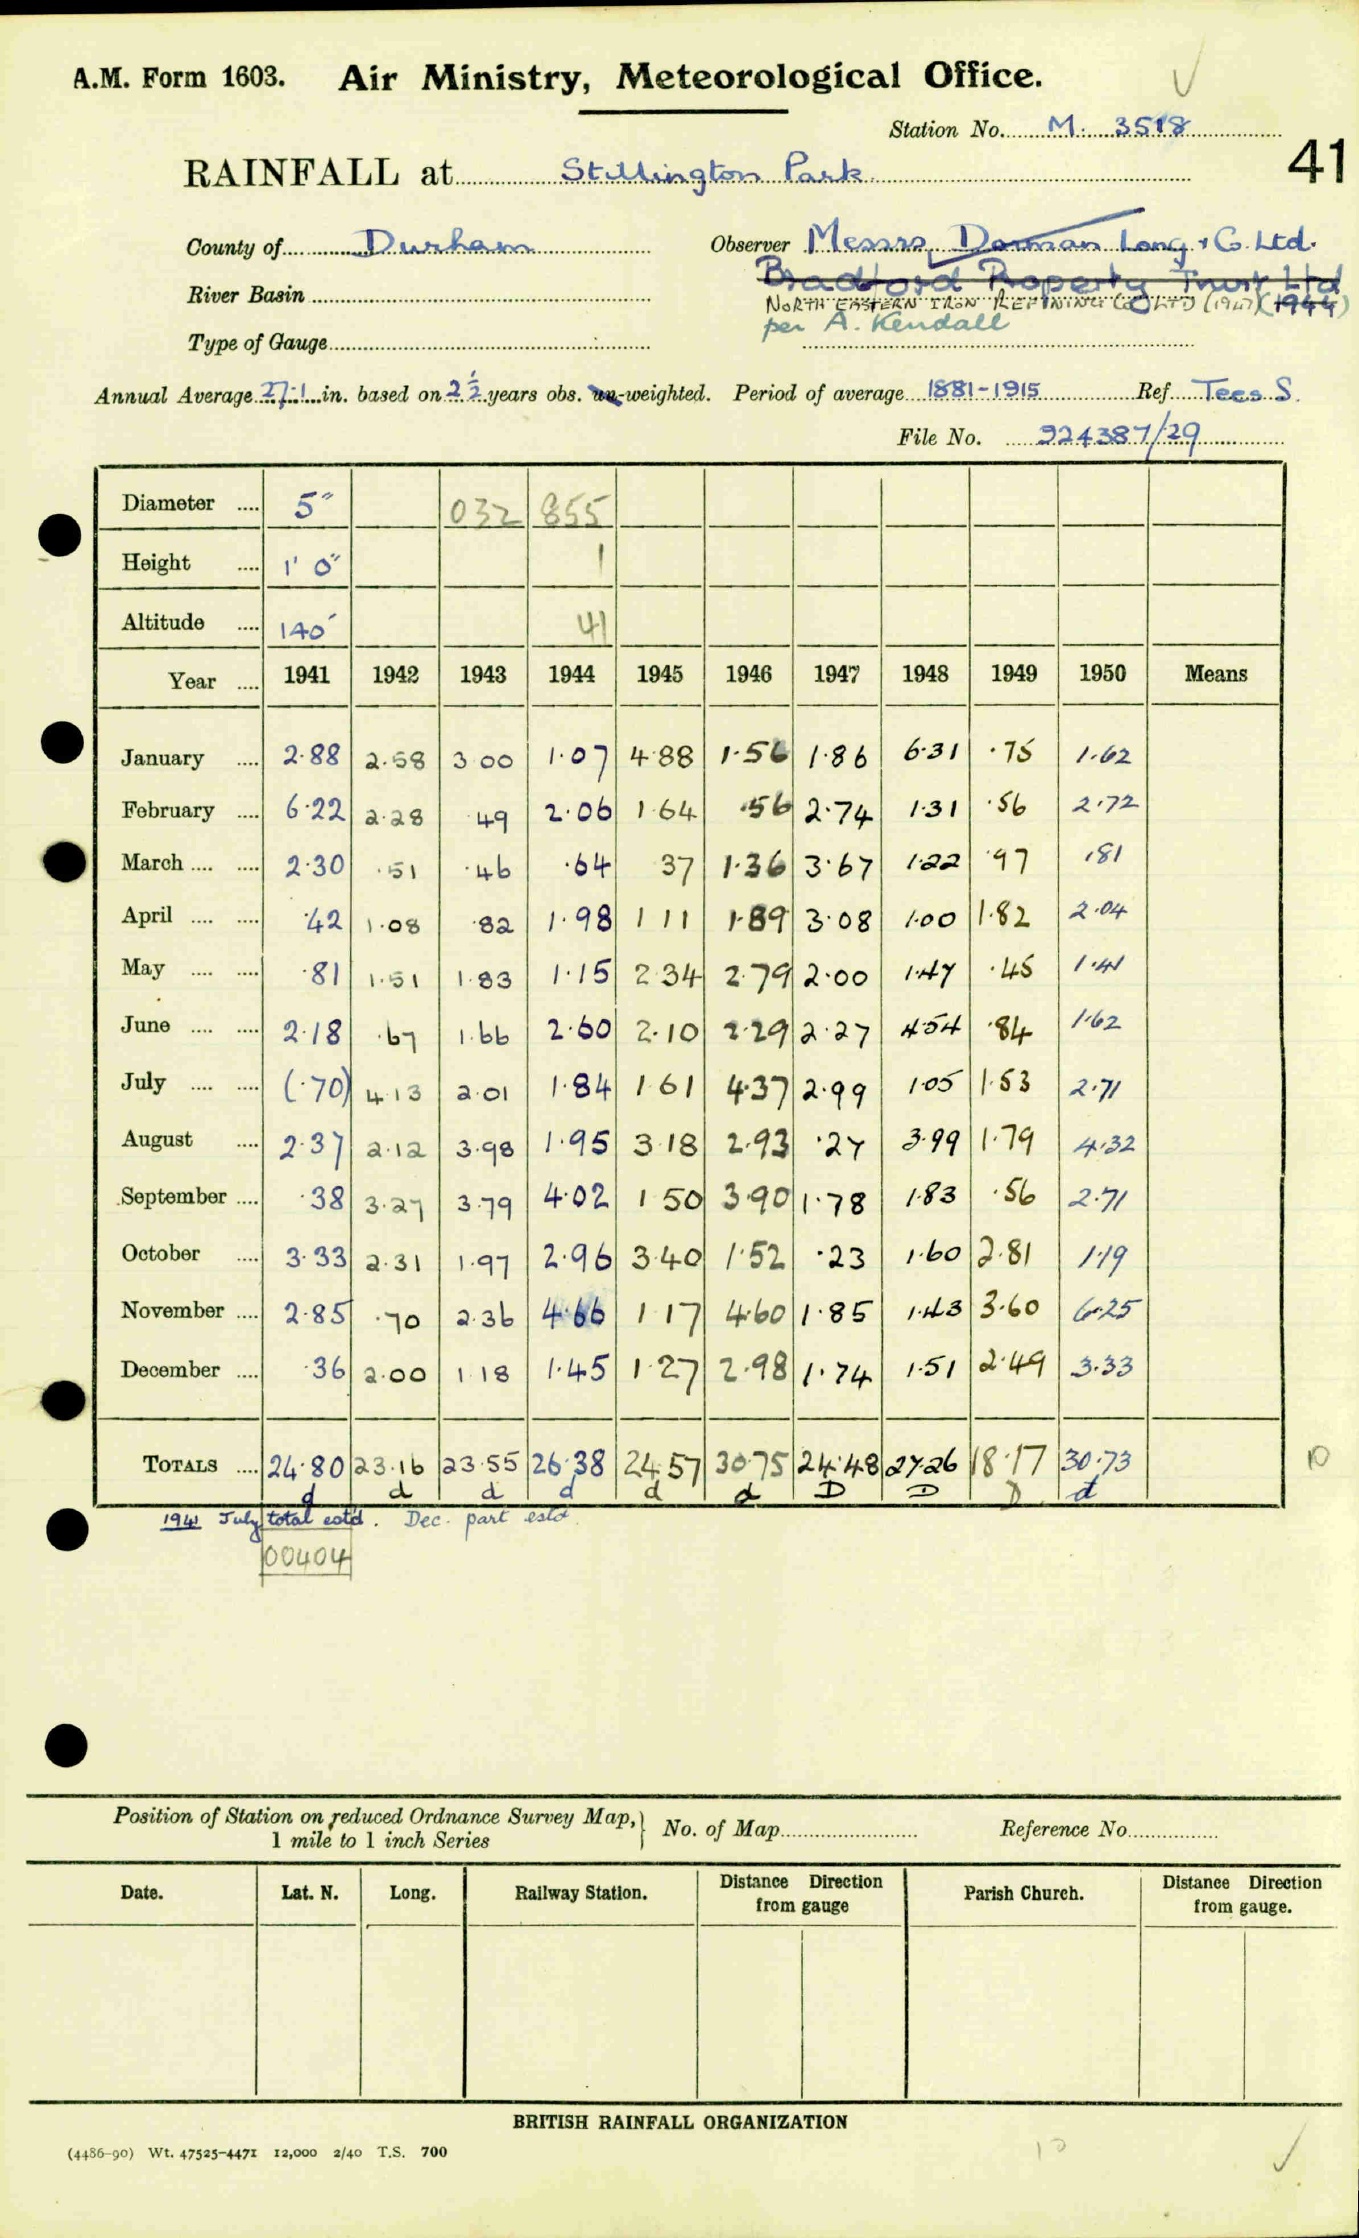 A.M. Form 1603. Air Ministry, Meteorological Office.
Station No. M. 3518
41
RAINFALL at Stillington Park
County of Durham Observer Messrs Dorman Long & Co. Ltd.
Bradford Property Trust Ltd
River Basin
NORTH EASTERN IRON REFINING CO LTD (1947) (1944)
per A. Kendall
Type of Gauge
Annual Average 27.1 in. based on 2½ years obs. un-weighted. Period of average 1881-1915 Ref. Tees S.
File No. 924387/29
Diameter 5" 032 855
Height 1' 0" 1
Altitude 140' 41
Year 1941 1942 1943 1944 1945 1946 1947 1948 1949 1950 Means
January 2.88 2.58 3 00 1.07 4.88 1.56 1.86 6.31 .75 1.62
February 6.22 2.28 .49 2.06 1 64 .56 2.74 1.31 .56 2.72
March 2.30 .51 .46 .64 37 1.36 3.67 1.22 .97 .81
April .42 1.08 .82 1.98 1 11 1.89 3.08 1.00 1.82 2.04
May .81 1.51 1.83 1.15 2 34 2.79 2.00 1.47 .45 1.41
June 2.18 .67 1.66 2.60 2.10 2.29 2.27 4.54 .84 1.62
July (.70) 4.13 2.01 1.84 1 61 4.37 2.99 1.05 1.53 2.71
August 2.37 2.12 3.98 1.95 3.18 2.93 .27 3.99 1.79 4.32
September .38 3.27 3.79 4.02 1 50 3.90 1.78 1.83 .56 2.71
October 3.33 2.31 1.97 2.96 3.40 1.52 .23 1.60 2.81 1.19
November 2.85 .70 2.36 4.66 1 17 4.60 1.85 1.43 3.60 6.25
December .36 2.00 1 18 1.45 1.27 2.98 1.74 1.51 2.49 3.33
TOTALS 24.80 23.16 23.55 26.38 24.57 30.75 24.48 27.26 18.17 30.73 10
d d d d d d D D D d
1941 July total estd. Dec. part estd
00404
Position of Station on reduced Ordnance Survey Map, 1 mile to 1 inch Series No. of Map Reference No.
Date. Lat. N. Long. Railway Station. Distance Direction from gauge Parish Church. Distance Direction from gauge.
BRITISH RAINFALL ORGANIZATION
(4486-90) Wt. 47525-4471 12,000 2/40 T.S. 700
10